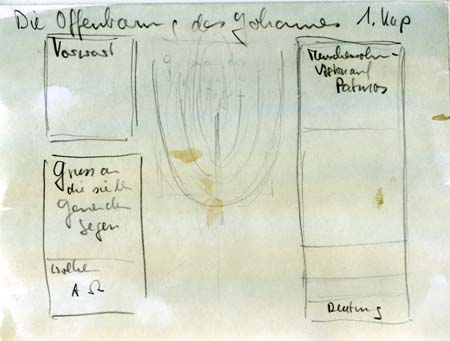 Die Offenbarung des Johannes 1. Kap
Vorwort
Gruss an
die sieben
Gemeinden
Segen
Wolken
A Ω
Menschensohn-
Vision auf
Patmos
Deutung